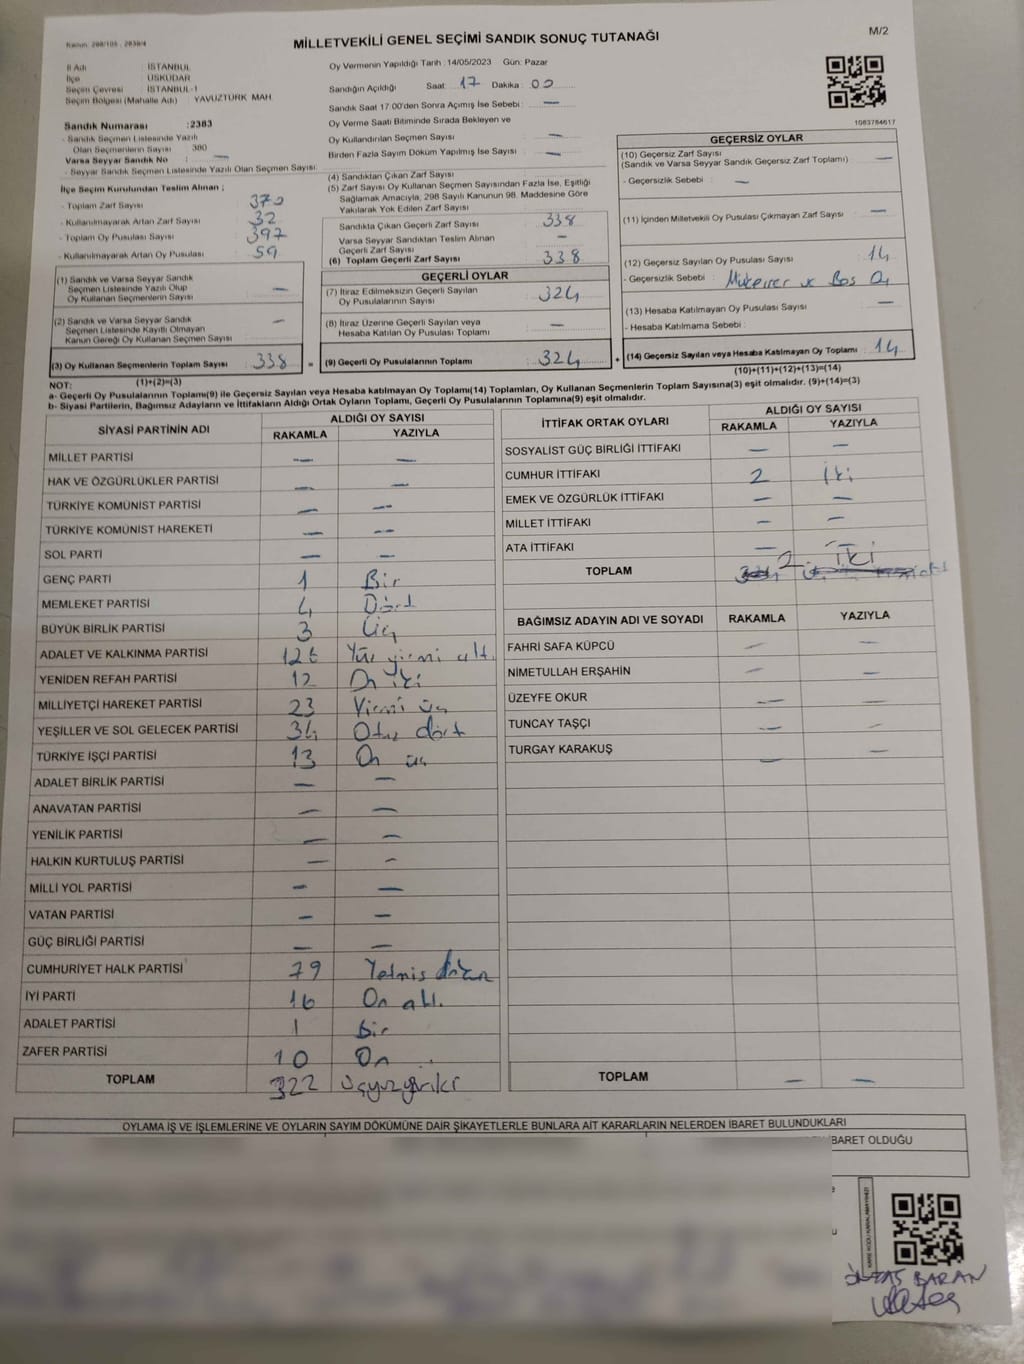 Kanun: 298/105 , 2839/4
MİLLETVEKİLİ GENEL SEÇİMİ SANDIK SONUÇ TUTANAĞI
M/2
İl Adı : İSTANBUL
İlçe : ÜSKÜDAR
Seçim Çevresi : İSTANBUL-1
Seçim Bölgesi (Mahalle Adı) : YAVUZTÜRK MAH.
Sandık Numarası : 2383
- Sandık Seçmen Listesinde Yazılı
Olan Seçmenlerin Sayısı : 380
Varsa Seyyar Sandık No : —
- Seyyar Sandık Seçmen Listesinde Yazılı Olan Seçmen Sayısı:
İlçe Seçim Kurulundan Teslim Alınan ;
- Toplam Zarf Sayısı : 370
- Kullanılmayarak Artan Zarf Sayısı : 32
- Toplam Oy Pusulası Sayısı : 397
- Kullanılmayarak Artan Oy Pusulası : 59
(1) Sandık ve Varsa Seyyar Sandık
Seçmen Listesinde Yazılı Olup
Oy Kullanan Seçmenlerin Sayısı —
(2) Sandık ve Varsa Seyyar Sandık
Seçmen Listesinde Kayıtlı Olmayan
Kanun Gereği Oy Kullanan Seçmen Sayısı —
(3) Oy Kullanan Seçmenlerin Toplam Sayısı 338 =
(1)+(2)=(3)
Oy Vermenin Yapıldığı Tarih : 14/05/2023 Gün: Pazar
Sandığın Açıldığı Saat : 17 Dakika : 00
Sandık Saat 17:00'den Sonra Açımış İse Sebebi : —
Oy Verme Saati Bitiminde Sırada Bekleyen ve
Oy Kullandırılan Seçmen Sayısı : —
Birden Fazla Sayım Döküm Yapılmış İse Sayısı : —
(4) Sandıktan Çıkan Zarf Sayısı :
(5) Zarf Sayısı Oy Kullanan Seçmen Sayısından Fazla İse, Eşitliği
Sağlamak Amacıyla, 298 Sayılı Kanunun 98. Maddesine Göre
Yakılarak Yok Edilen Zarf Sayısı :
Sandıkta Çıkan Geçerli Zarf Sayısı : 338
Varsa Seyyar Sandıktan Teslim Alınan
Geçerli Zarf Sayısı : —
(6) Toplam Geçerli Zarf Sayısı : 338
GEÇERLİ OYLAR
(7) İtiraz Edilmeksizin Geçerli Sayılan
Oy Pusulalarının Sayısı : 324
(8) İtiraz Üzerine Geçerli Sayılan veya
Hesaba Katılan Oy Pusulası Toplamı : —
(9) Geçerli Oy Pusulalarının Toplamı : 324 +
1083784617
GEÇERSİZ OYLAR
(10) Geçersiz Zarf Sayısı
(Sandık ve Varsa Seyyar Sandık Geçersiz Zarf Toplamı) : —
- Geçersizlik Sebebi : —
(11) İçinden Milletvekili Oy Pusulası Çıkmayan Zarf Sayısı : —
(12) Geçersiz Sayılan Oy Pusulası Sayısı : 14
- Geçersizlik Sebebi : ve Boş Oy
(13) Hesaba Katılmayan Oy Pusulası Sayısı : —
- Hesaba Katılmama Sebebi :
(14) Geçersiz Sayılan veya Hesaba Katılmayan Oy Toplamı : 14
(10)+(11)+(12)+(13)=(14)
NOT:
a- Geçerli Oy Pusulalarının Toplamı(9) ile Geçersiz Sayılan veya Hesaba katılmayan Oy Toplamı(14) Toplamları, Oy Kullanan Seçmenlerin Toplam Sayısına(3) eşit olmalıdır. (9)+(14)=(3)
b- Siyasi Partilerin, Bağımsız Adayların ve İttifakların Aldığı Ortak Oyların Toplamı, Geçerli Oy Pusulalarının Toplamına(9) eşit olmalıdır.
SİYASİ PARTİNİN ADI ALDIĞI OY SAYISI
RAKAMLA YAZIYLA
MİLLET PARTİSİ — —
HAK VE ÖZGÜRLÜKLER PARTİSİ — —
TÜRKİYE KOMÜNİST PARTİSİ — —
TÜRKİYE KOMÜNİST HAREKETİ — —
SOL PARTİ — —
GENÇ PARTİ 1 Bir
MEMLEKET PARTİSİ 4 Dört
BÜYÜK BİRLİK PARTİSİ 3 Üç
ADALET VE KALKINMA PARTİSİ 126 Yüz yirmi altı
YENİDEN REFAH PARTİSİ 12 On iki
MİLLİYETÇİ HAREKET PARTİSİ 23 Yirmi üç
YEŞİLLER VE SOL GELECEK PARTİSİ 34 Otuz dört
TÜRKİYE İŞÇİ PARTİSİ 13 On üç
ADALET BİRLİK PARTİSİ — —
ANAVATAN PARTİSİ — —
YENİLİK PARTİSİ — —
HALKIN KURTULUŞ PARTİSİ — —
MİLLİ YOL PARTİSİ — —
VATAN PARTİSİ — —
GÜÇ BİRLİĞİ PARTİSİ — —
CUMHURİYET HALK PARTİSİ 79 Yetmiş dokuz
İYİ PARTİ 16 On altı
ADALET PARTİSİ 1 Bir
ZAFER PARTİSİ 10 On
TOPLAM 322 üçyüzyirmiiki
İTTİFAK ORTAK OYLARI ALDIĞI OY SAYISI
RAKAMLA YAZIYLA
SOSYALİST GÜÇ BİRLİĞİ İTTİFAKI — —
CUMHUR İTTİFAKI 2 İki
EMEK VE ÖZGÜRLÜK İTTİFAKI — —
MİLLET İTTİFAKI — —
ATA İTTİFAKI — —
TOPLAM 2 İki
BAĞIMSIZ ADAYIN ADI VE SOYADI RAKAMLA YAZIYLA
FAHRİ SAFA KÜPCÜ — —
NİMETULLAH ERŞAHİN — —
ÜZEYFE OKUR — —
TUNCAY TAŞÇI — —
TURGAY KARAKUŞ — —
TOPLAM — —
OYLAMA İŞ VE İŞLEMLERİNE VE OYLARIN SAYIM DÖKÜMÜNE DAİR ŞİKAYETLERLE BUNLARA AİT KARARLARIN NELERDEN İBARET BULUNDUKLARI
İBARET OLDUĞU
BARAN